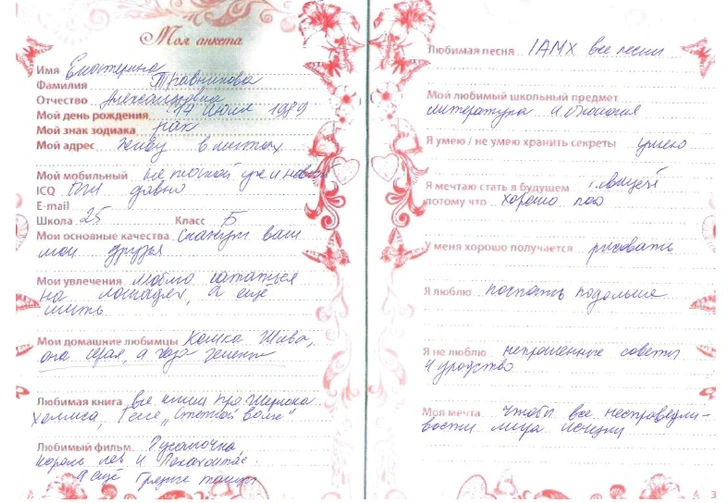 Моя анкета
Имя Екатерина
Фамилия Травникова
Отчество Александровна
Мой день рождения 17 июля 1989
Мой знак зодиака рак
Мой адрес живу в
Мой мобильный не плохой уже и новый
ICQ давно
E-mail
Школа 25 Класс Б
Мои основные качества Скажут вам
мои друзья
Мои увлечения люблю кататься
на лошадях, а ещё
шить
Мои домашние любимцы Кошка Жива,
она серая, а глаза зелёные
Любимая книга все книги про Шерлока
Холмса, Гессе „Степной волк"
Любимый фильм Русалочка
Король лев и Покахонтас
а ещё Грязные танцы
Любимая песня IAMX все песни
Мой любимый школьный предмет
литература и биология
Я умею / не умею хранить секреты умею
Я мечтаю стать в будущем певицей
потому что хорошо пою
У меня хорошо получается рисовать
Я люблю поспать подольше
Я не люблю непрошенные советы
и уродство
Моя мечта чтобы все несправедли-
вости мира исчезли